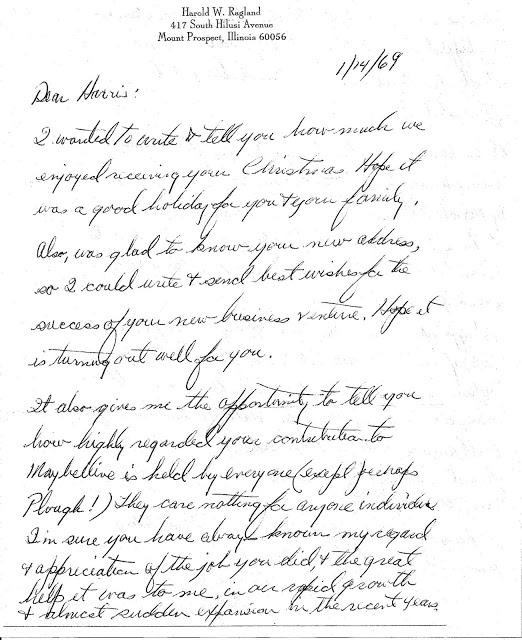 Harold W. Ragland
417 South Hilusi Avenue
Mount Prospect, Illinois 60056
1/14/69
Dear Harris:
I wanted to write & tell you how much we
enjoyed receiving your Christmas. Hope it
was a good holiday for you & your family.
Also, was glad to know your new address,
so I could write & send best wishes for the
success of your new business venture. Hope it
is turning out well for you.
It also gives me the opportunity to tell you
how highly regarded your contribution to
Maybelline is held by everyone (except perhaps
Plough!) They care nothing for anyone individual
I'm sure you have always known my regard
& appreciation of the job you did, & the great
help it was to me, in our rapid growth
& almost sudden expansion in the recent years